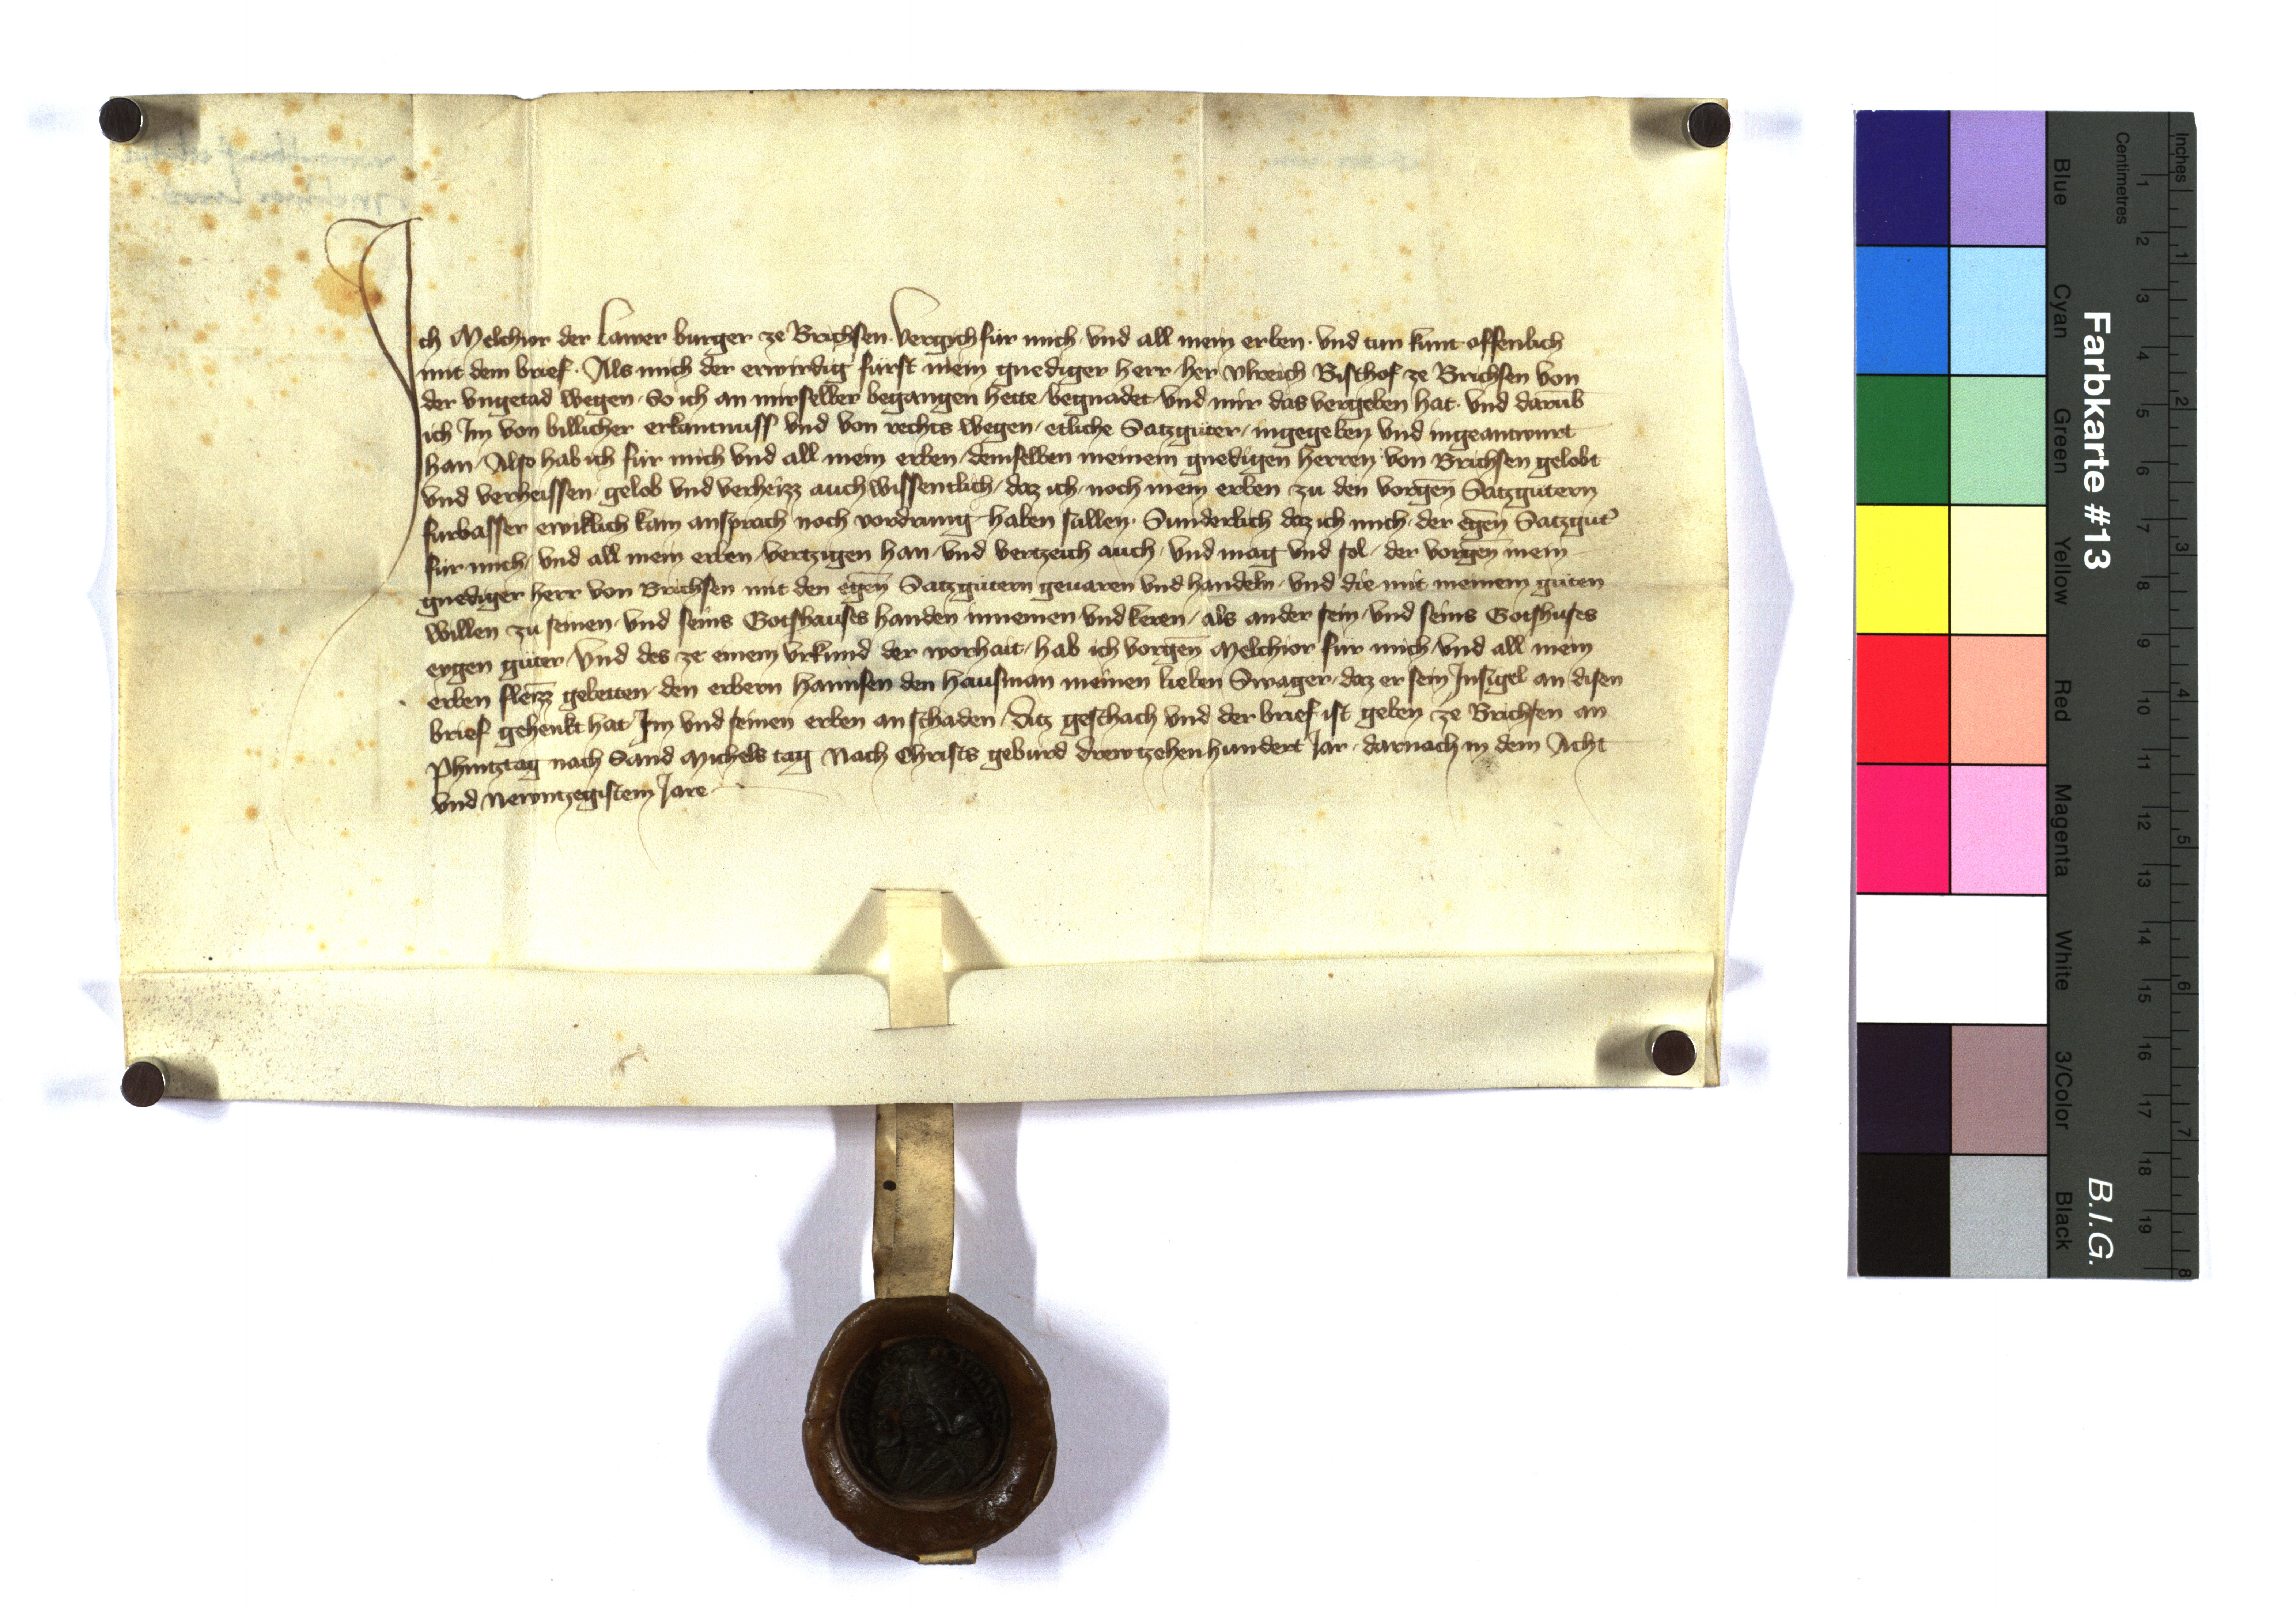 Ich Melchior der Lawer burger ze Brichsen. Vergych für mich. vnd all mein erben. vnd tun kunt offenlich
mit dem brief. Als mich der erwirdig fürst mein gnediger herr her Vlreich Bischof ze Brichsen von
der vngetad wegen. So ich an mirselber begangen hette begnadet vnd mir das vergeben hat. vnd darub̄
ich Im von billicher erkantnuss vnd von rechts wegen etliche Satzgüter ingegeben vnd ingeantwurt
han. Also hab ich für mich vnd all mein erben demselben meinem gnedigen herren von Brichsen gelobt
vnd verheissen. gelob vnd verheizz auch wissentlich. daz ich noch mein erben zu den vorgen̄ Satzgütern
fürbasser ewiklich kain ansprach noch vordrung haben süllen. Sunderlich daz ich mich der egen̄ Satzgüt̄
für mich vnd all mein erben vertzigen han vnd vertzeich auch. vnd mag vnd sol der vorgen̄ mein
gnediger herr von Brichsen mit den egen̄ Satzgütern geuaren vnd handeln vnd die mit meinem guten
willen zu seinen vnd seins Gotshauses handen innemen vnd keren als ander sein vnd seins Gotshuses
eygen güter. Vnd des ze einem vrkund der worhait hab ich vorgen̄ Melchior für mich vnd all mein
erben fleizz gebetten den erbern Hannsen den Hausman meinen lieben Swager daz er sein Insigel an disen
brief gehenkt hat Im vnd seinen erben an schaden. Ditz geschach vnd der brief ist geben ze Brichsen an
Phintztag nach Sand Michels tag Nach Christs geburd drewtzehenhundert Jar darnach in dem Acht
vnd Newntzegistem Jare
Farbkarte #13
B.I.G.
Inches
1 2 3 4 5 6 7 8
Centimetres
1 2 3 4 5 6 7 8 9 10 11 12 13 14 15 16 17 18 19
Blue Cyan Green Yellow Red Magenta White 3/Color Black